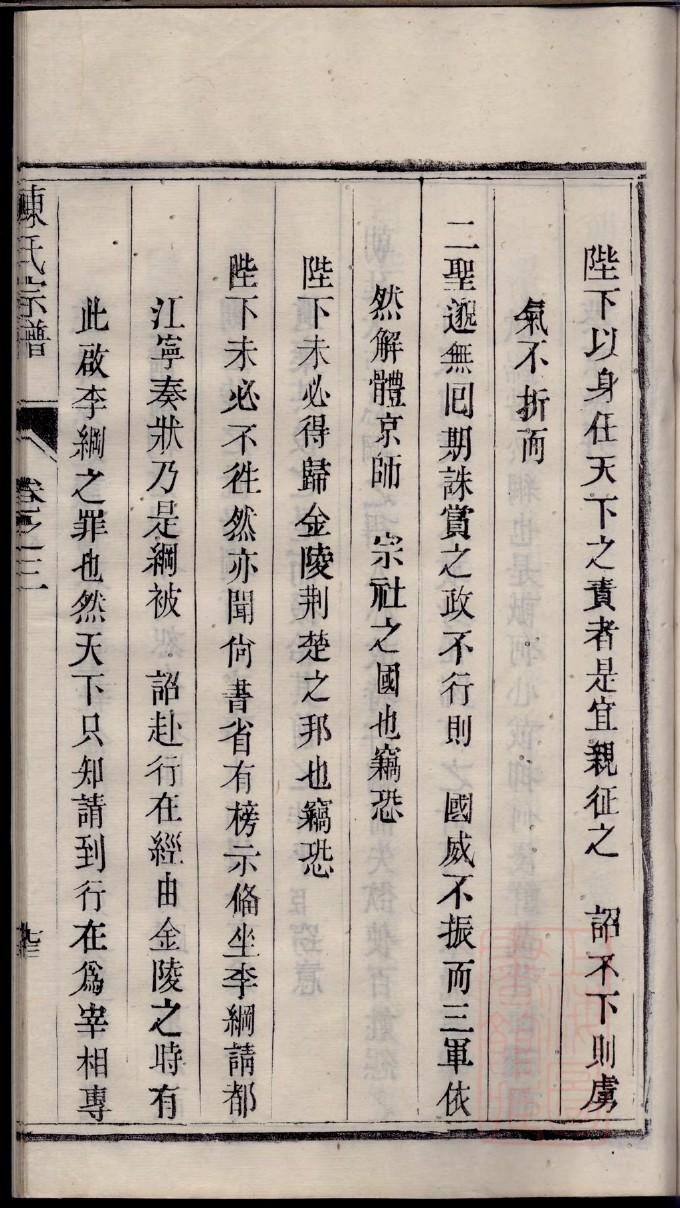 陛下以身任天下之責者是宜親征之 詔不下則虜
氣不折而
二聖邈無囘期誅賞之政不行則 國威不振而三軍依
然解體京師 宗社之國也竊恐
陛下未必得歸金陵荆楚之邦也竊恐
陛下未必不徃然亦聞尙書省有榜示偹坐李綱請都
江寧奏狀乃是綱被 詔赴行在經由金陵之時有
此啟李綱之罪也然天下只知請到行在爲宰相專
陳氏宗譜
卷之三